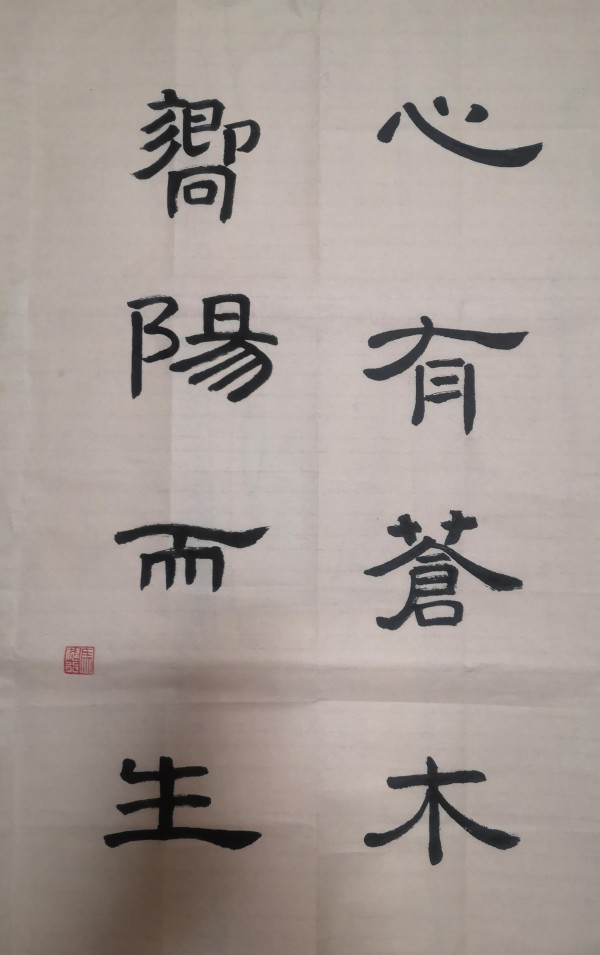 心有蒼木
嚮陽而生